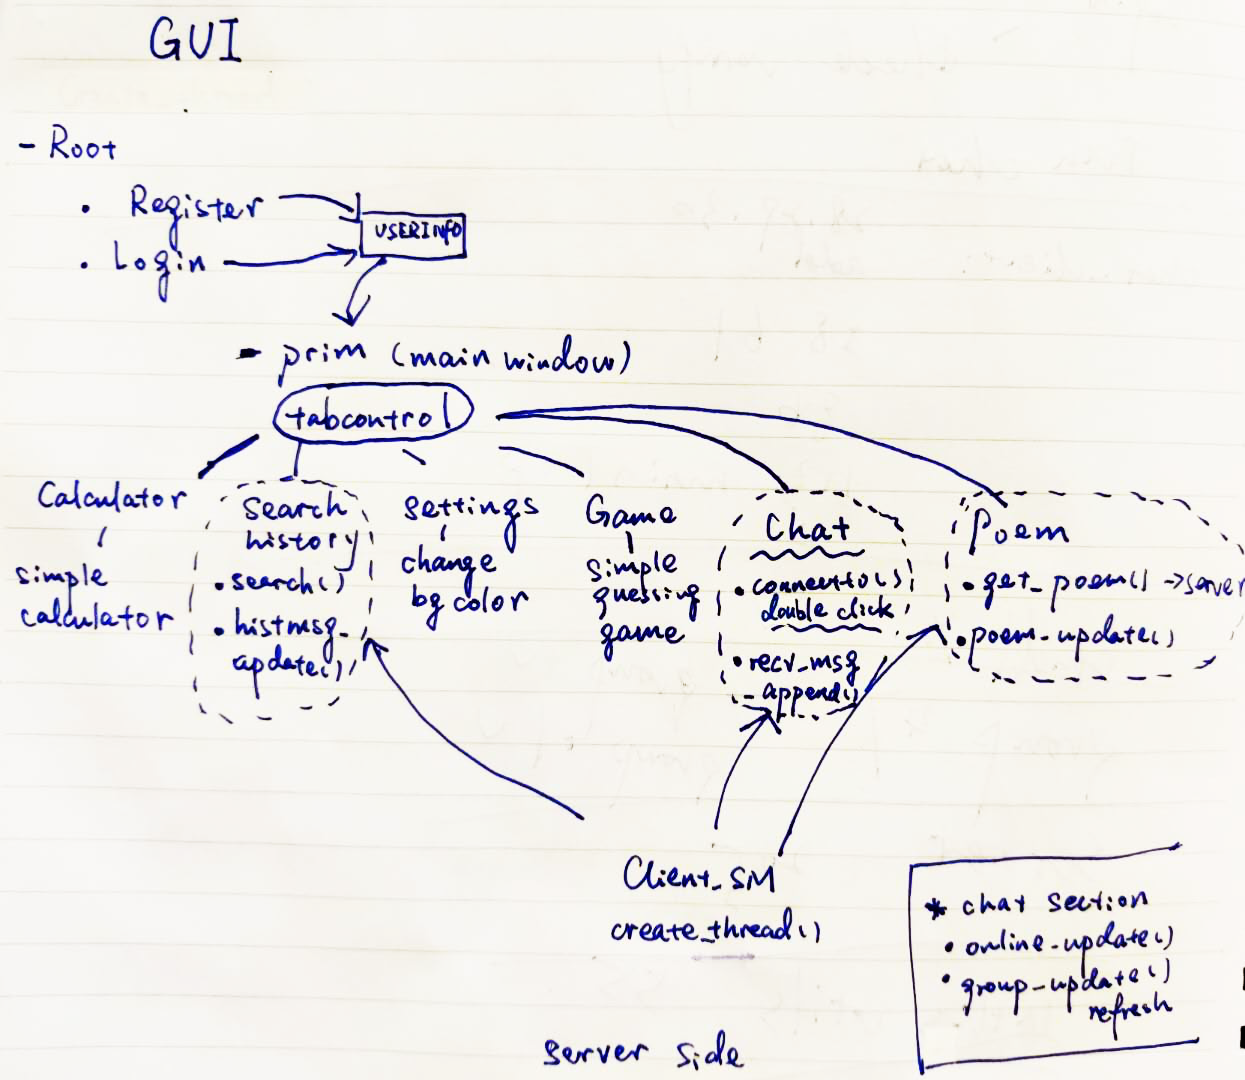 GUI
- Root
• Register
• Login
USERINFO
- prim (main window)
tabcontrol
Calculator
simple
calculator
Search
history
• search()
• histmsg_
update()
settings
change
bg color
Game
simple
guessing
game
Chat
• connectto()
double click
• recv_msg
_append()
Poem
• get_poem() → server
• poem_update()
Client_SM
create_thread()
* chat section
• online_update()
• group_update()
refresh
server side